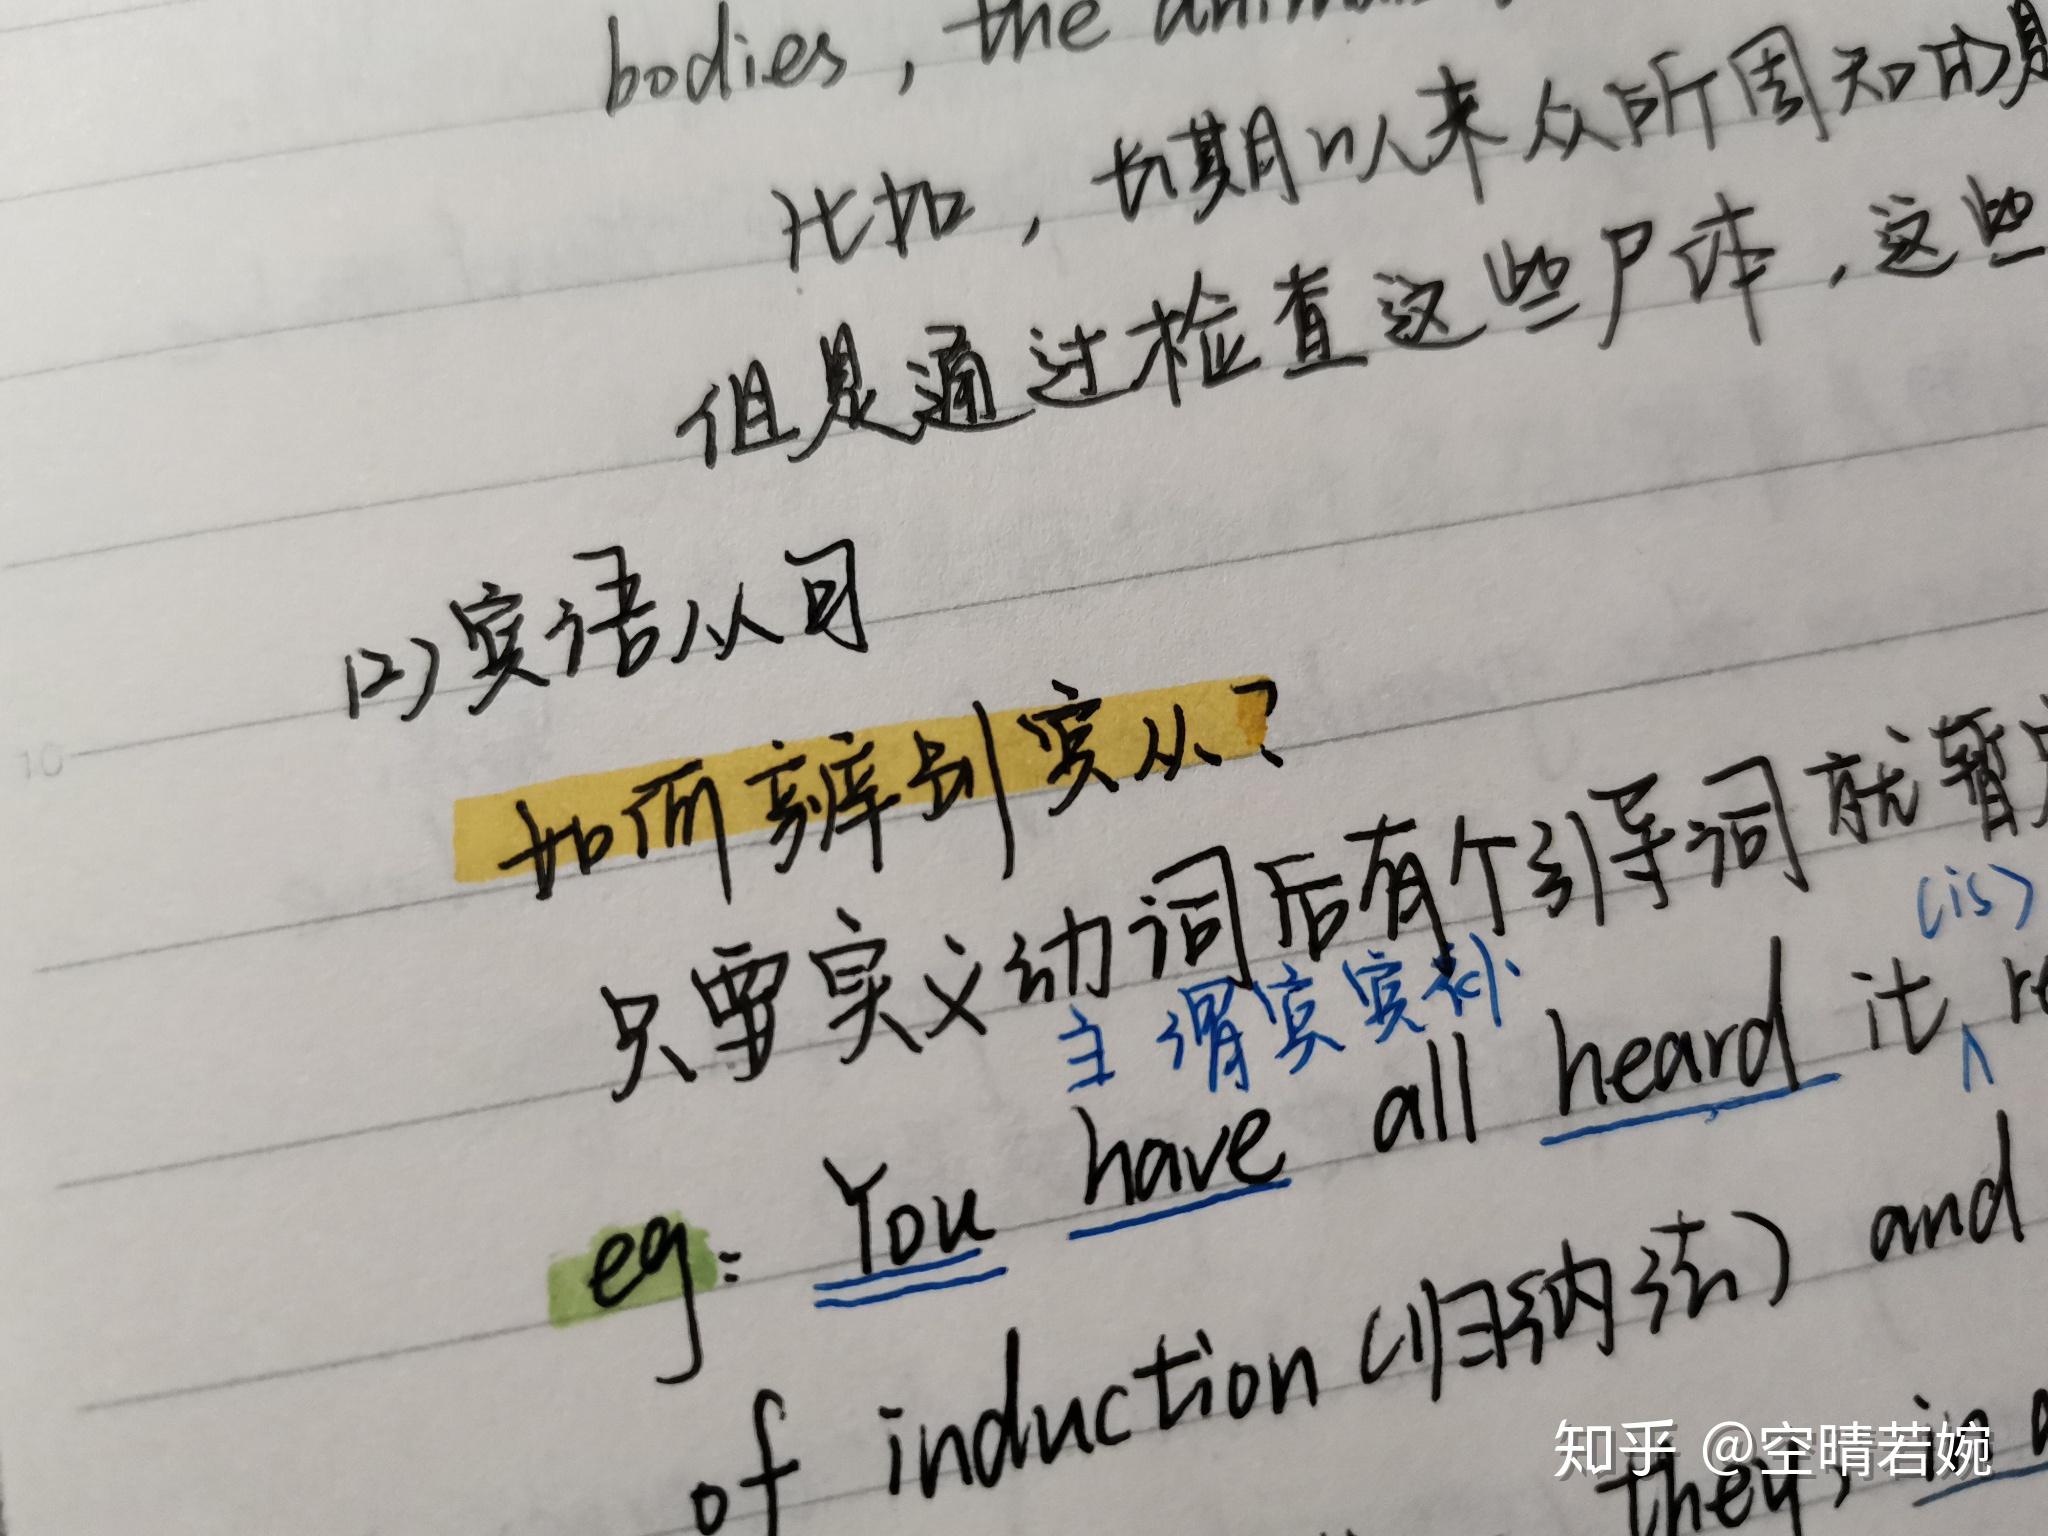 bodies, the
比如，长期以来众所周知的是
但是通过检查这些尸体，这些
(2)宾语从句
如何辨别宾从？
只要实义动词后有个引导词就暂
主 谓 宾 宾补
(is)
eg: You have all heard it
of induction (归纳法) and
they, in
10
知乎 @空晴若婉